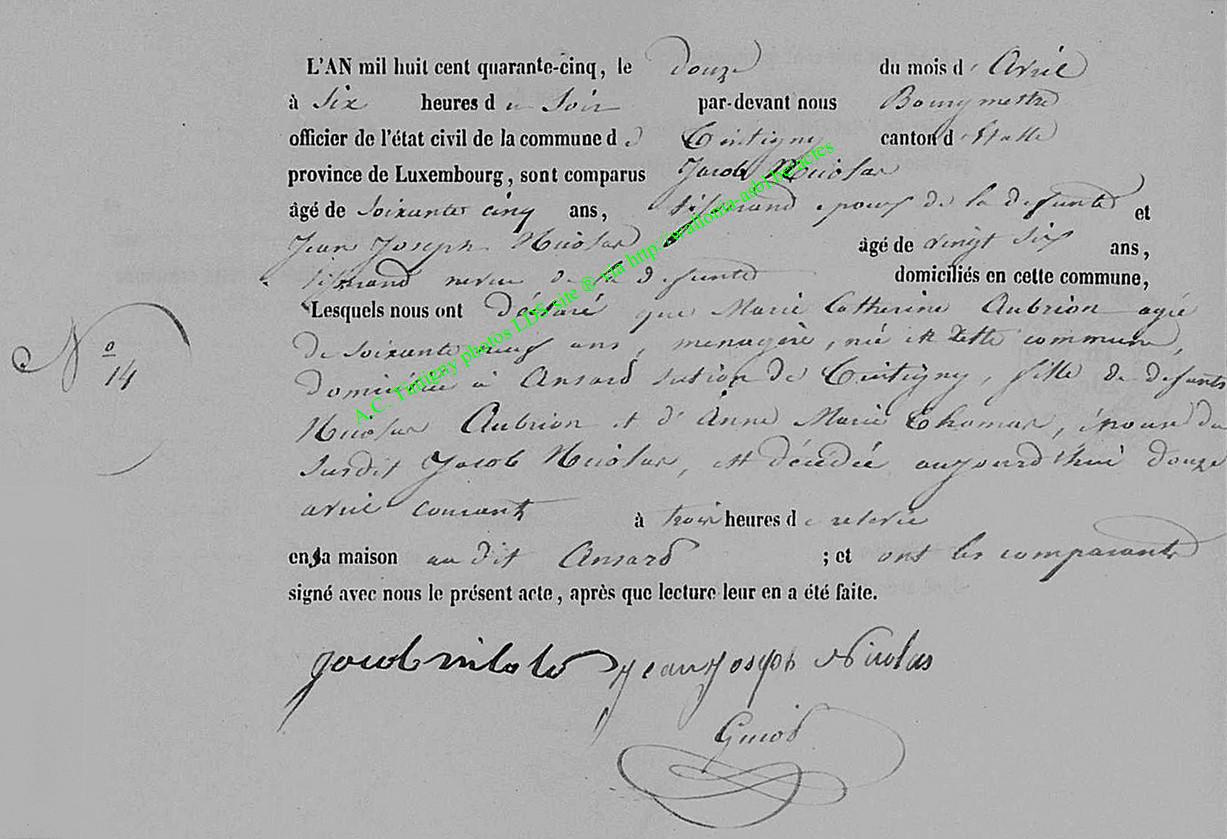 L'AN mil huit cent quarante-cinq, le douze du mois d'Avril
à Six heures du Soir par-devant nous Bourgmestre
officier de l'état civil de la commune de Tintigny canton d'Etalle
province de Luxembourg, sont comparus Jacob Nicolas
âgé de soixante cinq ans, tisserand époux de la defunte et
Jean Joseph Nicolas âgé de vingt six ans,
tisserand neveu de la defunte domiciliés en cette commune,
Lesquels nous ont déclaré que Marie Catherine Aubrion agée
de soixante neuf ans, menagère, née en cette commune,
domiciliée à Ansard section de Tintigny, fille de defunts
Nicolas Aubrion et d'Anne Marie Thomas, épouse du
susdit Jacob Nicolas, est décédée aujourd'hui douze
avril courant à trois heures de relevée
en sa maison au dit Ansard ; et ont les comparants
signé avec nous le présent acte, après que lecture leur en a été faite.
No 14
A.C. Tintigny photos LDS site ® via http://wallonia-asbl.be/actes
Jacob nicolas Jean Joseph Nicolas